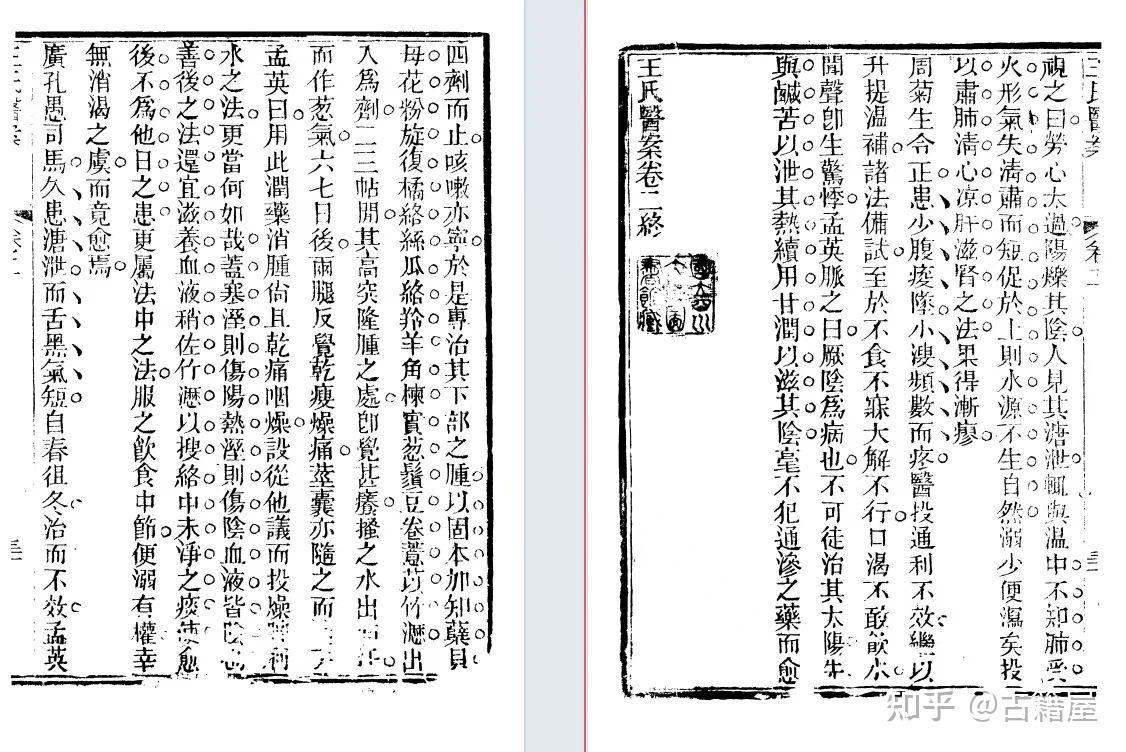 四劑而止咳嗽亦寧於是專治其下部之腫以固本加知蘗貝
母花粉旋復橘絡絲瓜絡羚羊角楝實葱鬚豆卷薏苡竹瀝出
入爲劑二三帖間其高突隆腫之處卽覺甚癢搔之水出
而作葱氣六七日後兩腿反覺乾瘦燥痛莖囊亦隨之而
孟英曰用此潤藥消腫尙且乾痛咽燥設從他議而投燥利
水之法更當何如哉蓋寒溼則傷陽熱溼則傷陰血液皆陰也
善後之法還宜滋養血液稍佐竹瀝以搜絡中未淨之痰使愈
後不爲他日之患更屬法中之法服之飮食中節便溺有權幸
無消渴之虞而竟愈焉
廣孔愚司馬久患溏泄而舌黑氣短自春徂冬治而不效孟英
王氏醫案
視之曰勞心太過陽爍其陰人見其溏泄輒與溫中不知肺受
火形氣失清肅而短促於上則水源不生自然溺少便瀉矣投
以肅肺清心凉肝滋腎之法果得漸瘳
周菊生令正患少腹痠墜小溲頻數而疼醫投通利不效繼以
升提溫補諸法備試至於不食不寐大解不行口渴不敢飮水
聞聲卽生驚悸孟英脈之曰厥陰爲病也不可徒治其太陽先
與鹹苦以泄其熱續用甘潤以滋其陰毫不犯通滲之藥而愈
王氏醫案卷二終
知乎 @古籍屋